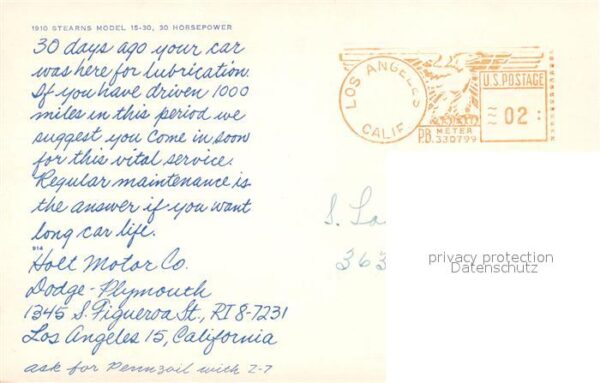 1910 STEARNS MODEL 15-30, 30 HORSEPOWER
30 days ago your car
was here for lubrication.
If you have driven 1000
miles in this period we
suggest you come in soon
for this vital service.
Regular maintenance is
the answer if you want
long car life.
914
Holt Motor Co.
Dodge-Plymouth
1345 S. Figueroa St., RI 8-7231
Los Angeles 15, California
ask for Pennzoil with Z-7
LOS ANGELES
CALIF
U.S. POSTAGE
02
P.B. METER
330799
S.
363
privacy protection
Datenschutz